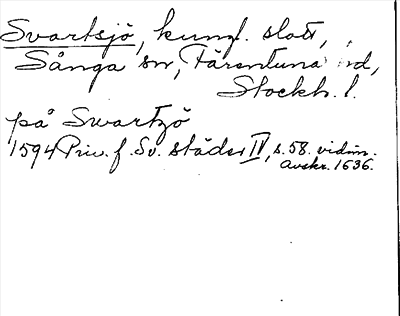 Svartsjö, kungl. slott,
Sånga sn, Färentuna hd,
Stockh. l.
på Swartzö
1594 Priv. f. Sv. städer IV, s. 58. vidim.
avskr. 1636.